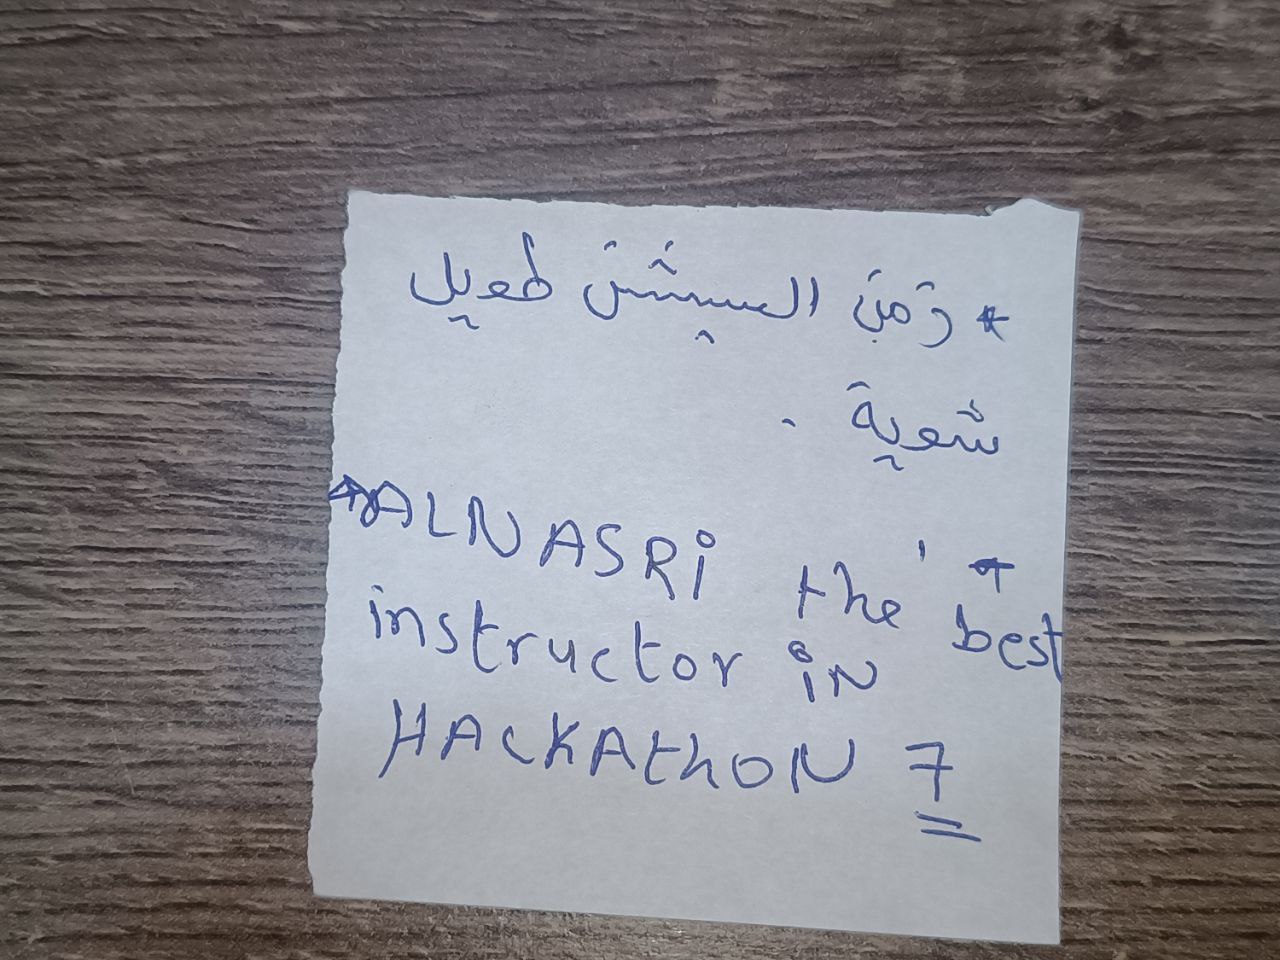 * زمن السيشن طويل
شوية .
* ALNASRi the best
instructor in
HACKAthON 7